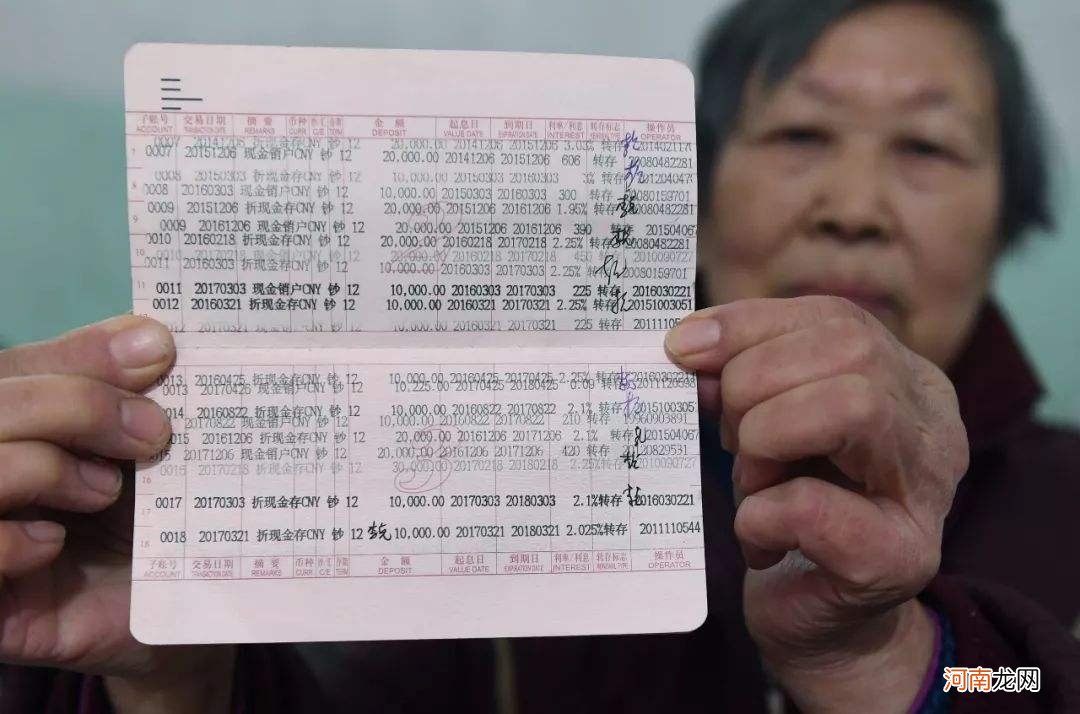 子账号 交易日期 摘要 币种 金额 起息日 到期日 利率/利息 转存标志 操作员
ACCOUNT TRANSACTION DATE REMARKS CURR C/E TERM DEPOSIT VALUE DATE EXPIRATION DATE INTEREST RENEWAL TYPE OPERATOR
0007 20,000.00 20141206 20151206 3.03%转存
7 0007 20151206 现金销户CNY 钞 12 20,000.00 20141206 20151206 606 转存 20080482281
0008 20150303 折现金存CNY 钞 12 10,000.00 20150303 20160303 转存
8 0008 20160303 现金销户CNY 钞 12 10,000.00 20150303 20160303 300 转存 20080159701
9 0009 20151206 折现金存CNY 钞 12 20,000.00 20151206 20161206 1.95% 转存 20080482281
0009 20161206 现金销户CNY 钞 12 20,000.00 20151206 20161206 390 转存
10 0010 20160218 折现金存CNY 钞 12 20,000.00 20160218 20170218 2.25% 转存 20080482281
0011 20160303 折现金存CNY 钞 12 10,000.00 20160303 20170303 2.25% 转存 20080159701
11 0011 20170303 现金销户CNY 钞 12 10,000.00 20160303 20170303 225 转存 2016030221
0012 20160321 折现金存CNY 钞 12 10,000.00 20160321 20170321 2.25% 转存 20151003051
20170321 现金销户CNY 钞 12 10,000.00 20160321 20170321 225 转存
0013 20160425 折现金存CNY 钞 12 10,000.00 20160425 20170425 2.25% 转存
0013 20170426 现金销户CNY 钞 12 10,225.00 20170425 20180425
14 20160822 折现金存CNY 钞 12 10,000.00 20160822 20170822 2.1% 转存 20151003051
20170822 现金销户CNY 钞 12 10,000.00 20160822 20170822 210 转存
15 20161206 折现金存CNY 钞 12 20,000.00 20161206 20171206 2.1% 转存
20171206 现金销户CNY 钞 12 20,000.00 20161206 20171206 420 转存
16 20170218 折现金存CNY 钞 12 30,000.00 20170218 20180218 2.25% 转存
17 0017 20170303 折现金存CNY 钞 12 10,000.00 20170303 20180303 2.1%转存 2016030221
18 0018 20170321 折现金存CNY 钞 12 10,000.00 20170321 20180321 2.025%转存 2011110544
子账号 交易日期 摘要 币种 金额 起息日 到期日 利率/利息 转存标志 操作员
ACCOUNT TRANSACTION DATE REMARKS CURR C/E TERM DEPOSIT VALUE DATE EXPIRATION DATE INTEREST RENEWAL TYPE OPERATOR
河南龙网